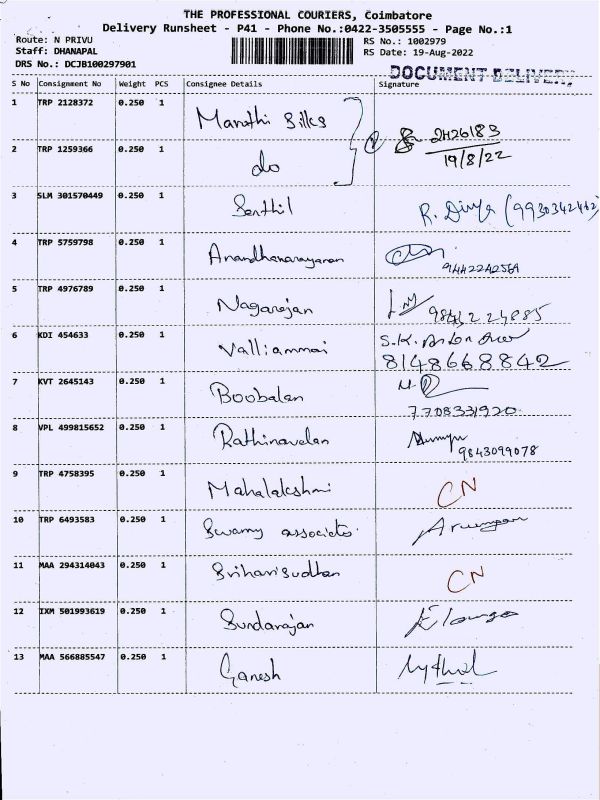 THE PROFESSIONAL COURIERS, Coimbatore
Delivery Runsheet - P41 - Phone No.:0422-3505555 - Page No.:1
Route: N PRIVU RS No.: 1002979
Staff: DHANAPAL RS Date: 19-Aug-2022
DRS No.: DCJB100297901
DOCUMENT DELIVERY
S No Consignment No Weight PCS Consignee Details Signature
1 TRP 2128372 0.250 1 Maruthi Silks 2426183
2 TRP 1259366 0.250 1 do 19/8/22
3 SLM 301570449 0.250 1 Senthil R. Divya (9930342462)
4 TRP 5759798 0.250 1 Anandhanarayanan
9442242569
5 TRP 4976789 0.250 1 Nagarajan
6 KDI 454633 0.250 1 Valliammai S.K.
8148668842
7 KVT 2645143 0.250 1 Boobalan
7708331920
8 VPL 499815652 0.250 1 Rathinavelan
9843099078
9 TRP 4758395 0.250 1 Mahalakshmi CN
10 TRP 6493583 0.250 1 Swamy associates
11 MAA 294314043 0.250 1 Sriharisudhan CN
12 IXM 501993619 0.250 1 Sundarajan Elango
13 MAA 566885547 0.250 1 Ganesh